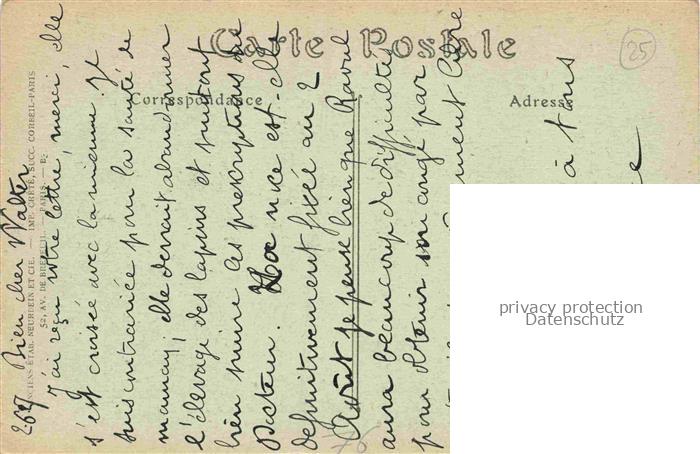 Carte Postale
Correspondance
Adresse
25
ANCIENS ETAB. NEURDEIN ET CIE. — IMP. CRÉTÉ, SUCC. CORBEIL-PARIS
52, AV. DE BRETEUIL. — PARIS. —
267
Bien cher Walter
J'ai reçu votre lettre, merci, elle
s'est croisée avec la mienne. Je
suis contrariée pour la santé de
maman, elle devrait abandonner
l'élevage des lapins et surtout
bien suivre les prescriptions du
Docteur. noce est-elle
definitivement fixée au 2
Août je pense bien que Raoul
aura beaucoup de difficultés
pour obtenir son congé par
à tous
76
privacy protection
Datenschutz